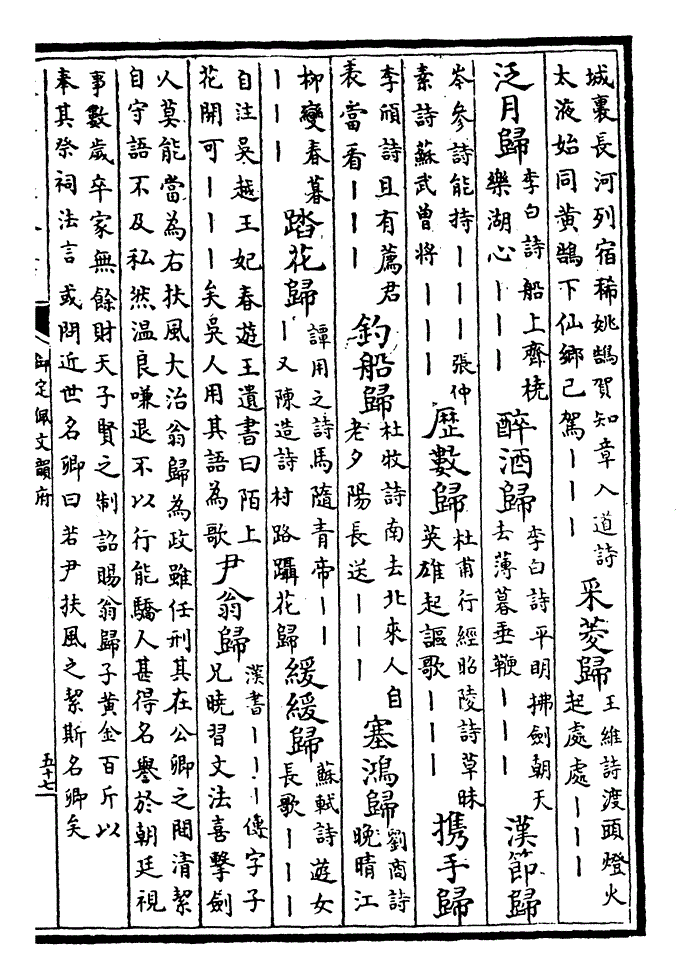 城裏長河列宿稀姚鵠賀知章入道詩
太液始同黃鵠下仙鄉已駕丨丨丨
采菱歸
王維詩渡頭燈火
起處處丨丨丨
泛月歸
李白詩船上齊橈
樂湖心丨丨丨
醉酒歸
李白詩平明拂劍朝天
去薄暮垂鞭丨丨丨
漢節歸
岑參詩能持丨丨丨張仲
素詩蘇武曾將丨丨丨
歷數歸
杜甫行經昭陵詩草昧
英雄起謳歌丨丨丨
携手歸
李頎詩且有薦君
表當看丨丨丨
釣船歸
杜牧詩南去北來人自
老夕陽長送丨丨丨
塞鴻歸
劉商詩
晚晴江
柳變春暮
丨丨丨
踏花歸
譚用之詩馬隨青帝丨丨
丨又陳造詩村路躡花歸
緩緩歸
蘇軾詩遊女
長歌丨丨丨
自注吳越王妃春遊王遺書曰陌上
花開可丨丨丨矣吳人用其語為歌
尹翁歸
漢書丨丨丨傳字子
兄曉習文法喜擊劍
人莫能當為右扶風大治翁歸為政雖任刑其在公卿之間清絜
自守語不及私然溫良嗛退不以行能驕人甚得名譽於朝廷視
事數歲卒家無餘財天子賢之制詔賜翁歸子黃金百斤以
奉其祭祠法言或問近世名卿曰若尹扶風之絜斯名卿矣
御定佩文韻府
五十七